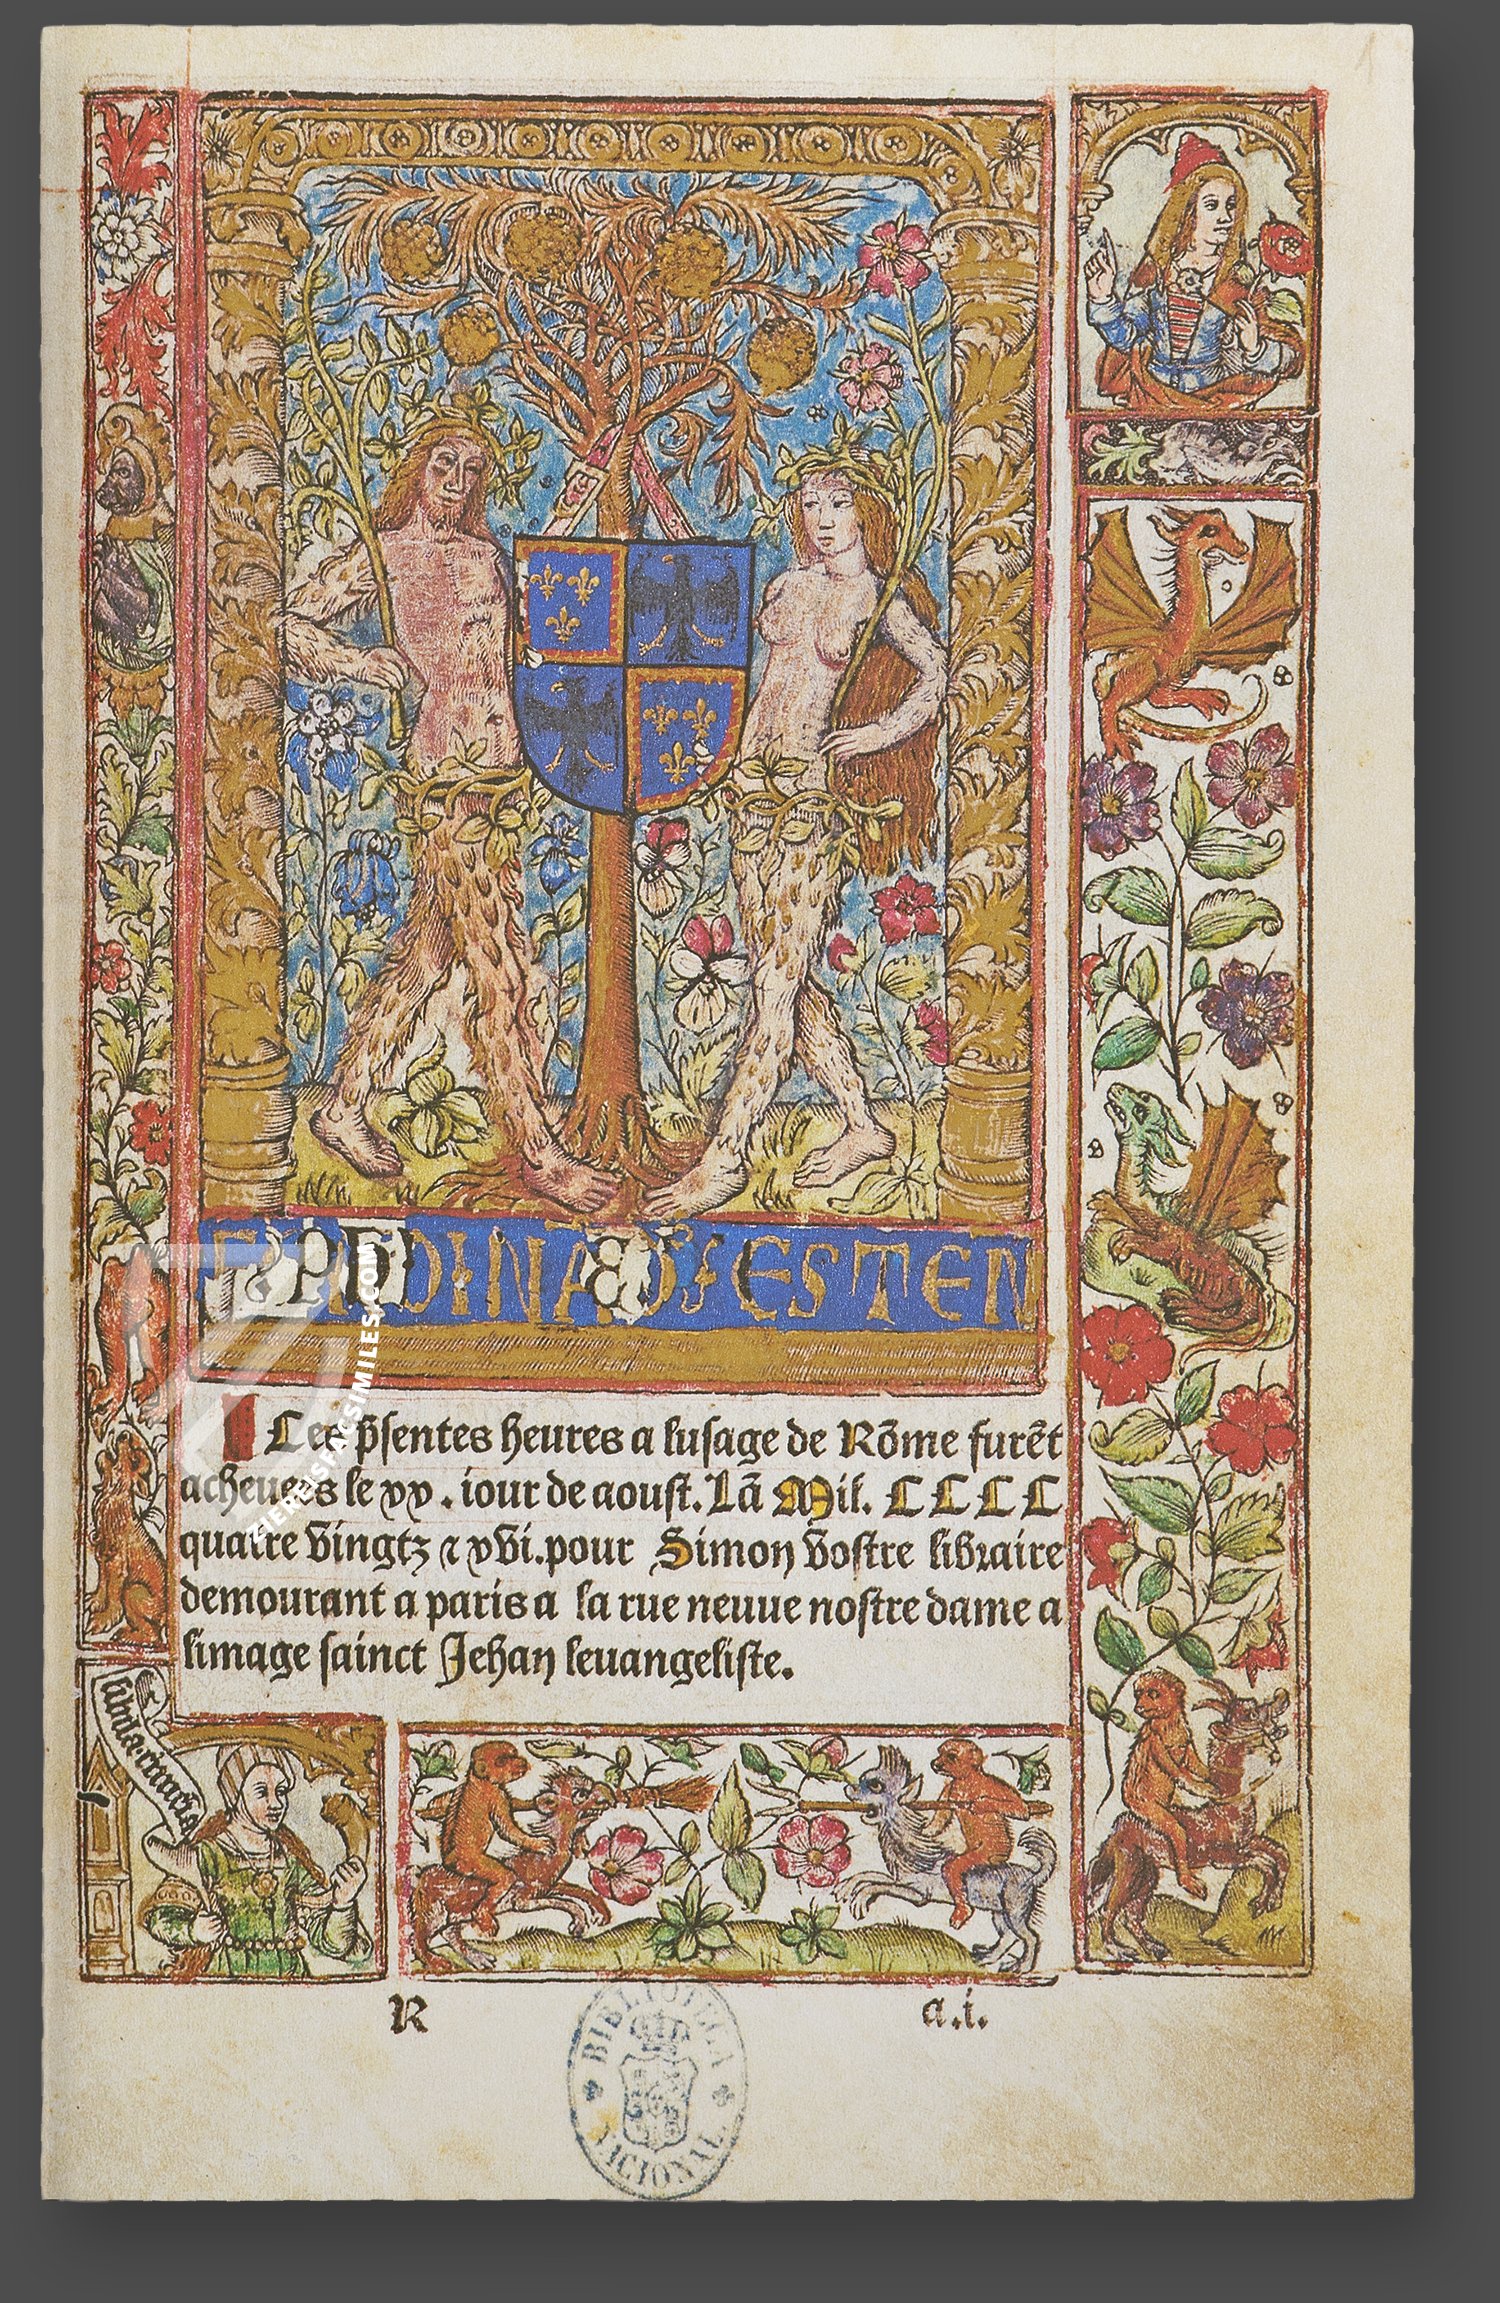 DINA
ESTEN
Les p̄sentes heures a lusage de Rōme furēt
acheuees le xx. iour de aoust. Lā Mil. CCCC
quatre vingtz ⁊ xvi. pour Simon vostre libraire
demourant a paris a la rue neuue nostre dame a
limage sainct Jehan leuangeliste.
R a.i.
BIBLIOTECA
NACIONAL
ZIEREISFACSIMILES.COM